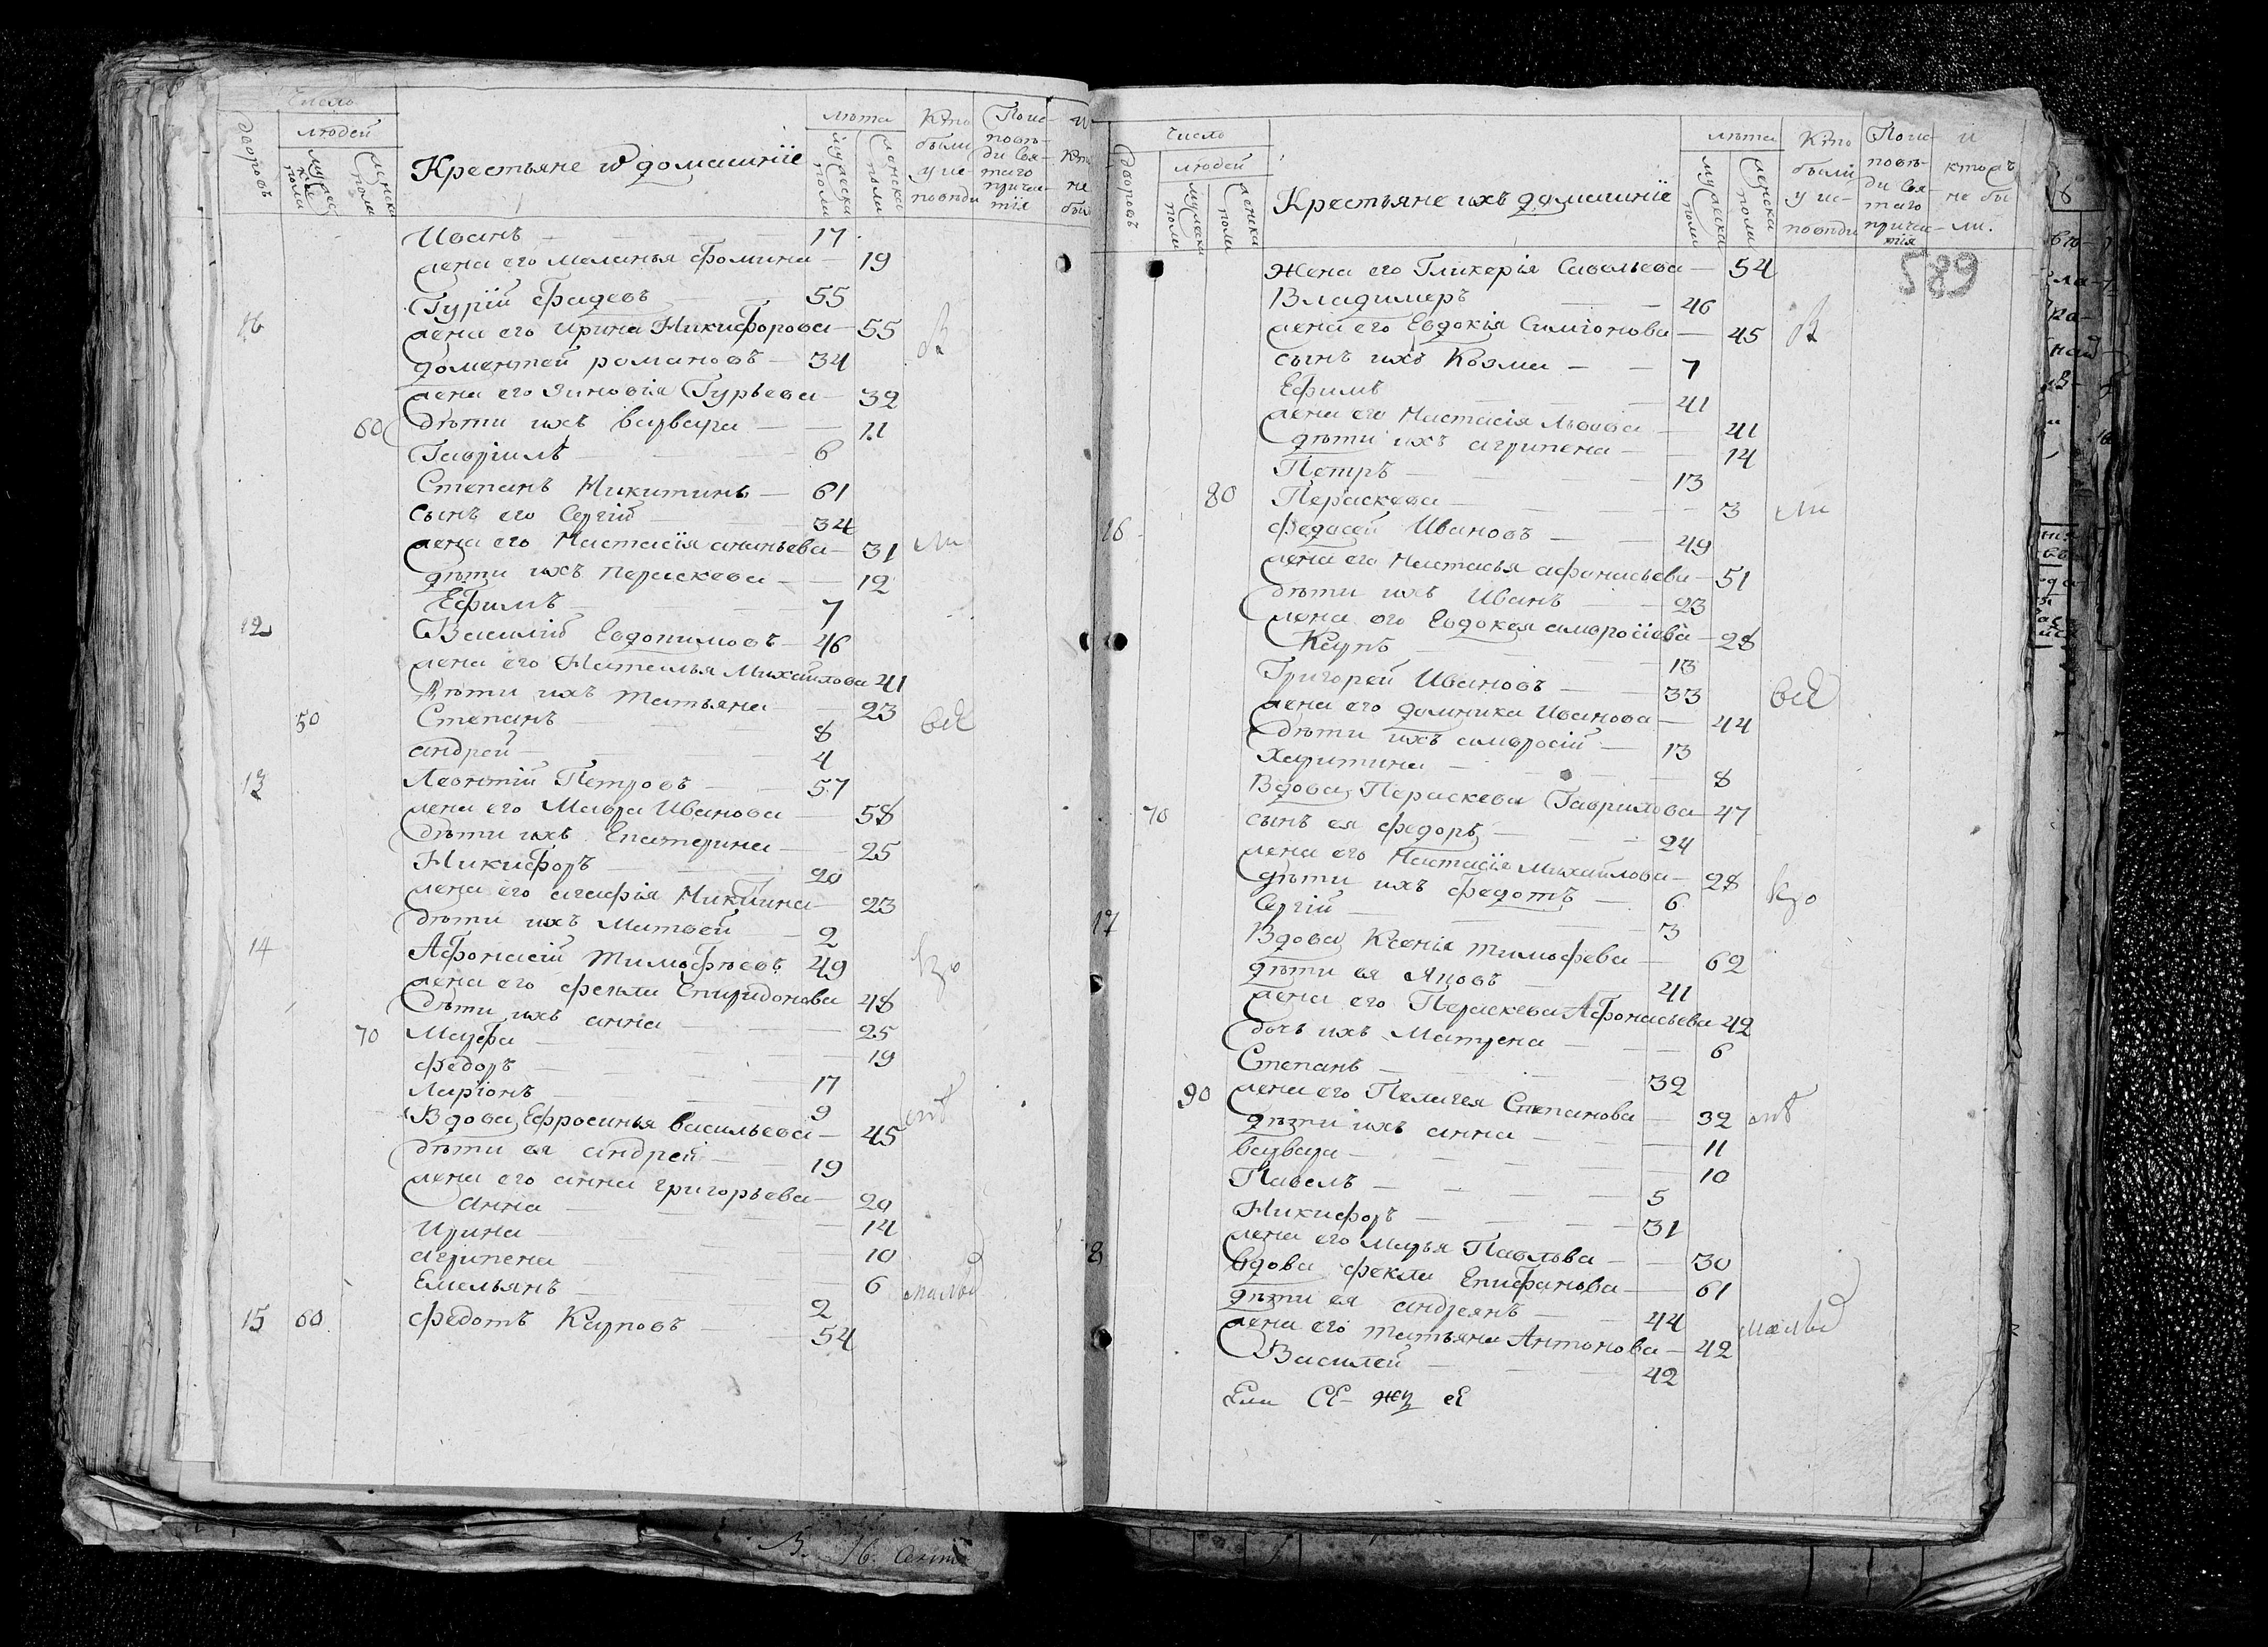 Число
дворовъ
людей
мужеска полу
женска полу
Крестьяне и домашнїе
лѣта
мужеска полу
женска полу
Кто были у исповѣди
По исповѣди святаго причастїя
и кто не бы
Иванъ 17
жена его Меланья Фомина 19
16 Гурїй Фадеевъ 55
жена его Ирина Никифорова 55
Доментей Романовъ 34
жена его Зиновїя Гурьева 32
60 дѣти ихъ Варвара 11
Гаврїилъ 6
Степанъ Никитинъ 61
сынъ его Сергїй 34
жена его Настасїя Ананьева 31 ли
дѣти ихъ Параскева 12
Ефимъ 7
12 Василїй Евдокимовъ 46
жена его Наталья Михайлова 41
дѣти ихъ Татьяна 23
50 Степанъ 8
Андрей 4
13 Леонтїй Петровъ 57
жена его Мавра Иванова 58
дѣти ихъ Екатерина 25
Никифоръ 20
жена его Агафїя Никитина 23
дѣти ихъ Матвей 2
14 Афонасїй Тимофѣевъ 49
жена его Фекла Спиридонова 48
дѣти ихъ Анна 25
70 Марфа 19
Федоръ 17
Ларїонъ 9
Вдова Ефросинья Васильева 45
дѣти ея Андрей 19
жена его Анна Григорьева 20
Анна 14
Ирина 10
Агрипена 6
Емельянъ 2
15 60 Федотъ Карповъ 54
Число
дворовъ
людей
мужеска полу
женска полу
Крестьяне ихъ домашнїе
лѣта
мужеска полу
женска полу
Кто были у исповѣди
По исповѣди святаго причастїя
и кто жъ не были.
589
Жена его Гликерїя Савельева 54
Владимеръ 46
жена его Евдокїя Симїонова 45
сынъ ихъ Козма 7
Ефимъ 41
жена его Настасїя Львова 41
дѣти ихъ Агрипена 14
Петръ 13
80 Параскева 3 ли
16 Федосей Ивановъ 49
жена его Настасья Афонасьева 51
дѣти ихъ Иванъ 23
жена его Евдокея Амвросїева 28
Карпъ 13
Григорей Ивановъ 33
жена его Домника Иванова 44
дѣти ихъ Амвросїй 13
Харитина 8
Вдова Параскева Гаврилова 47
70 сынъ ея Федоръ 24
жена его Настасїя Михайлова 28
дѣти ихъ Федотъ 6
Сергїй 3
17 Вдова Ксенїя Тимофева 62
дѣти ея Яковъ 41
жена его Параскева Афонасьева 42
дочь ихъ Матрена 6
Степанъ 32
90 жена его Пелагея Степанова 32
дѣти ихъ Анна 11
Варвара 10
Павелъ 5
Никифоръ 31
жена его Марья Павлова 30
8 Вдова Фекла Епифанова 61
дѣти ея Андреянъ 44
жена его Татьяна Антонова 42
Василей 42